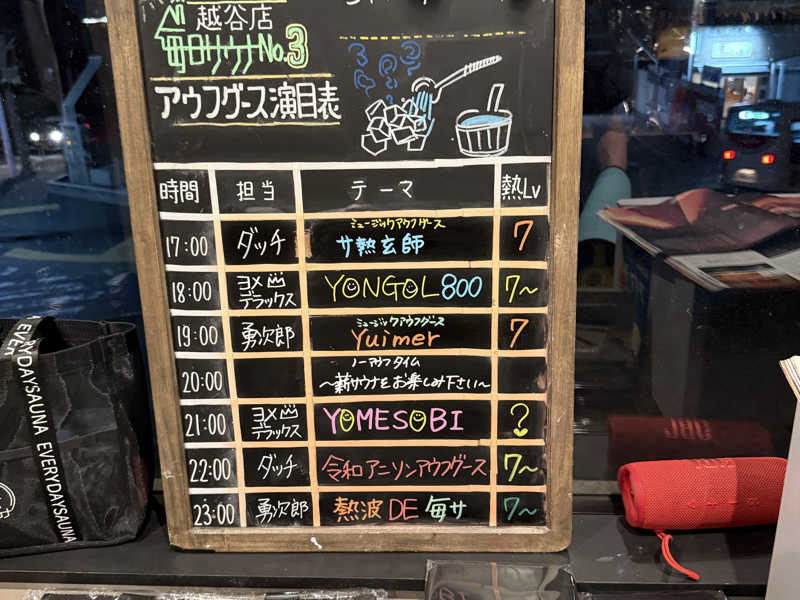 越谷店
毎日サウナ No.3
アウフグース演目表
時間 担当 テーマ 熱Lv
17:00 ダッチ ミュージックアウフグース サ熱玄師 7
18:00 ヨメ デラックス YONGOL800 7〜
19:00 勇次郎 ミュージックアウフグース Yuimer 7
20:00 ノーアウフタイム 〜薪サウナをお楽しみ下さい〜
21:00 ヨメ デラックス YOMESOBI ?
22:00 ダッチ 令和アニソンアウフグース 7〜
23:00 勇次郎 熱波DE毎サ 7〜
EVERYDAYSAUNA EVERYDAYSAUNA